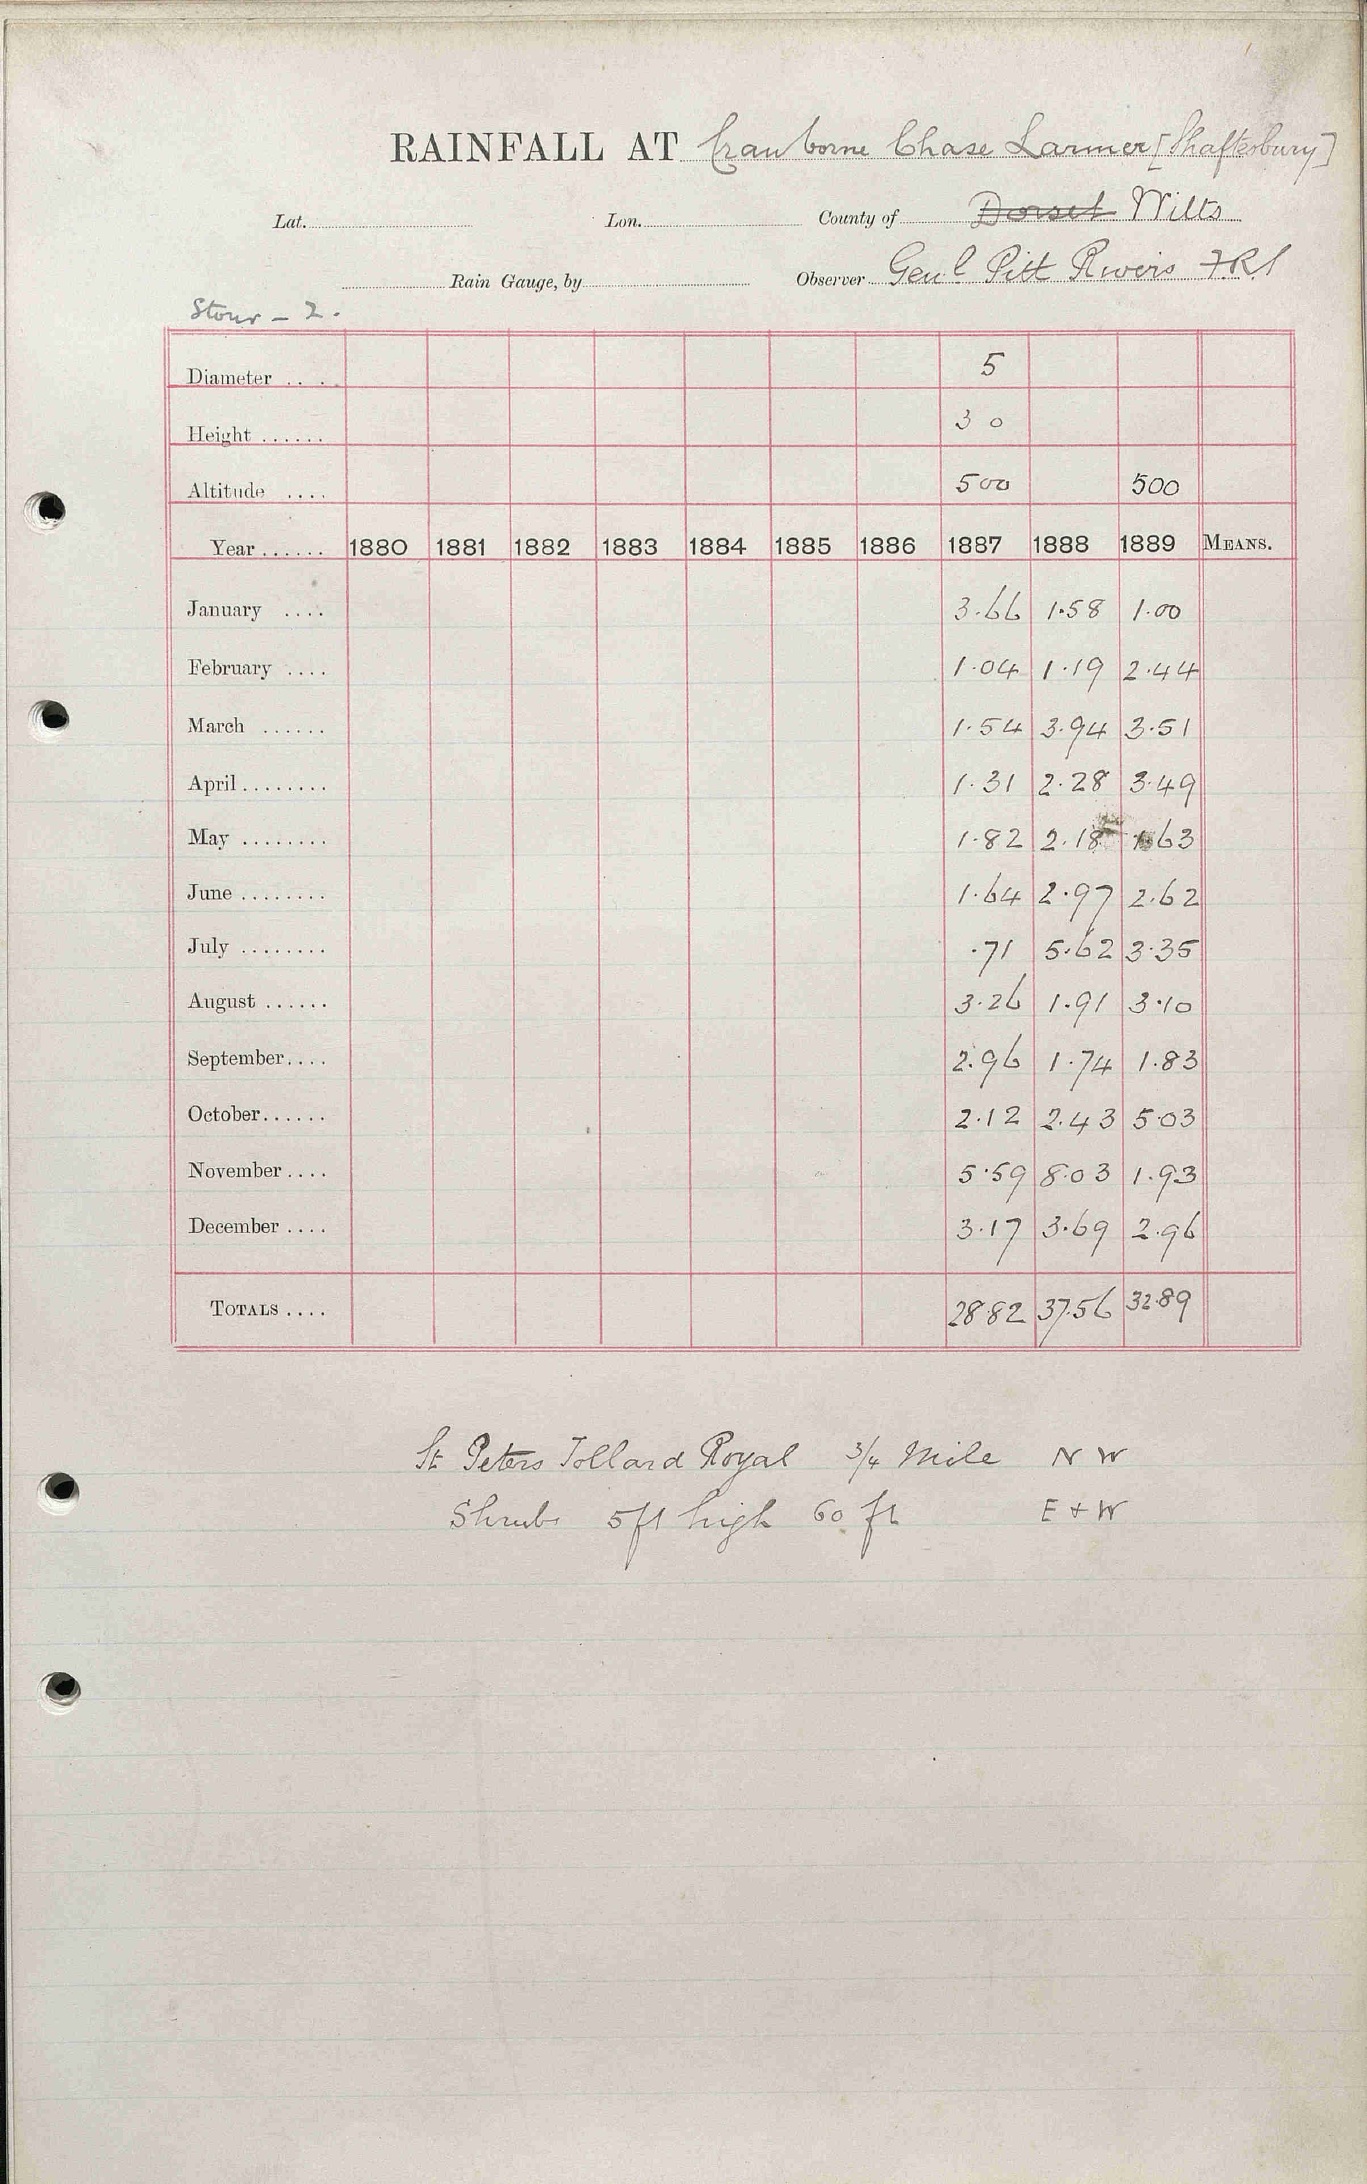 RAINFALL AT Cranborne Chase Larmer [Shaftesbury]
Lat. Lon. County of ~~Dorset~~ Wilts
Rain Gauge, by Observer Genl Pitt Rivers FRS
Stour - 2.
Diameter .... 5
Height ...... 3 0
Altitude .... 500 500
Year ...... 1880 1881 1882 1883 1884 1885 1886 1887 1888 1889 MEANS.
January .... 3.66 1.58 1.00
February .... 1.04 1.19 2.44
March ...... 1.54 3.94 3.51
April ........ 1.31 2.28 3.49
May ........ 1.82 2.18 1.63
June ........ 1.64 2.97 2.62
July ........ .71 5.62 3.35
August ...... 3.26 1.91 3.10
September.... 2.96 1.74 1.83
October...... 2.12 2.43 5.03
November .... 5.59 8.03 1.93
December .... 3.17 3.69 2.96
TOTALS .... 28.82 37.56 32.89
St Peters Tollard Royal 3/4 Mile N W
Shrubs 5ft high 60 ft E + W